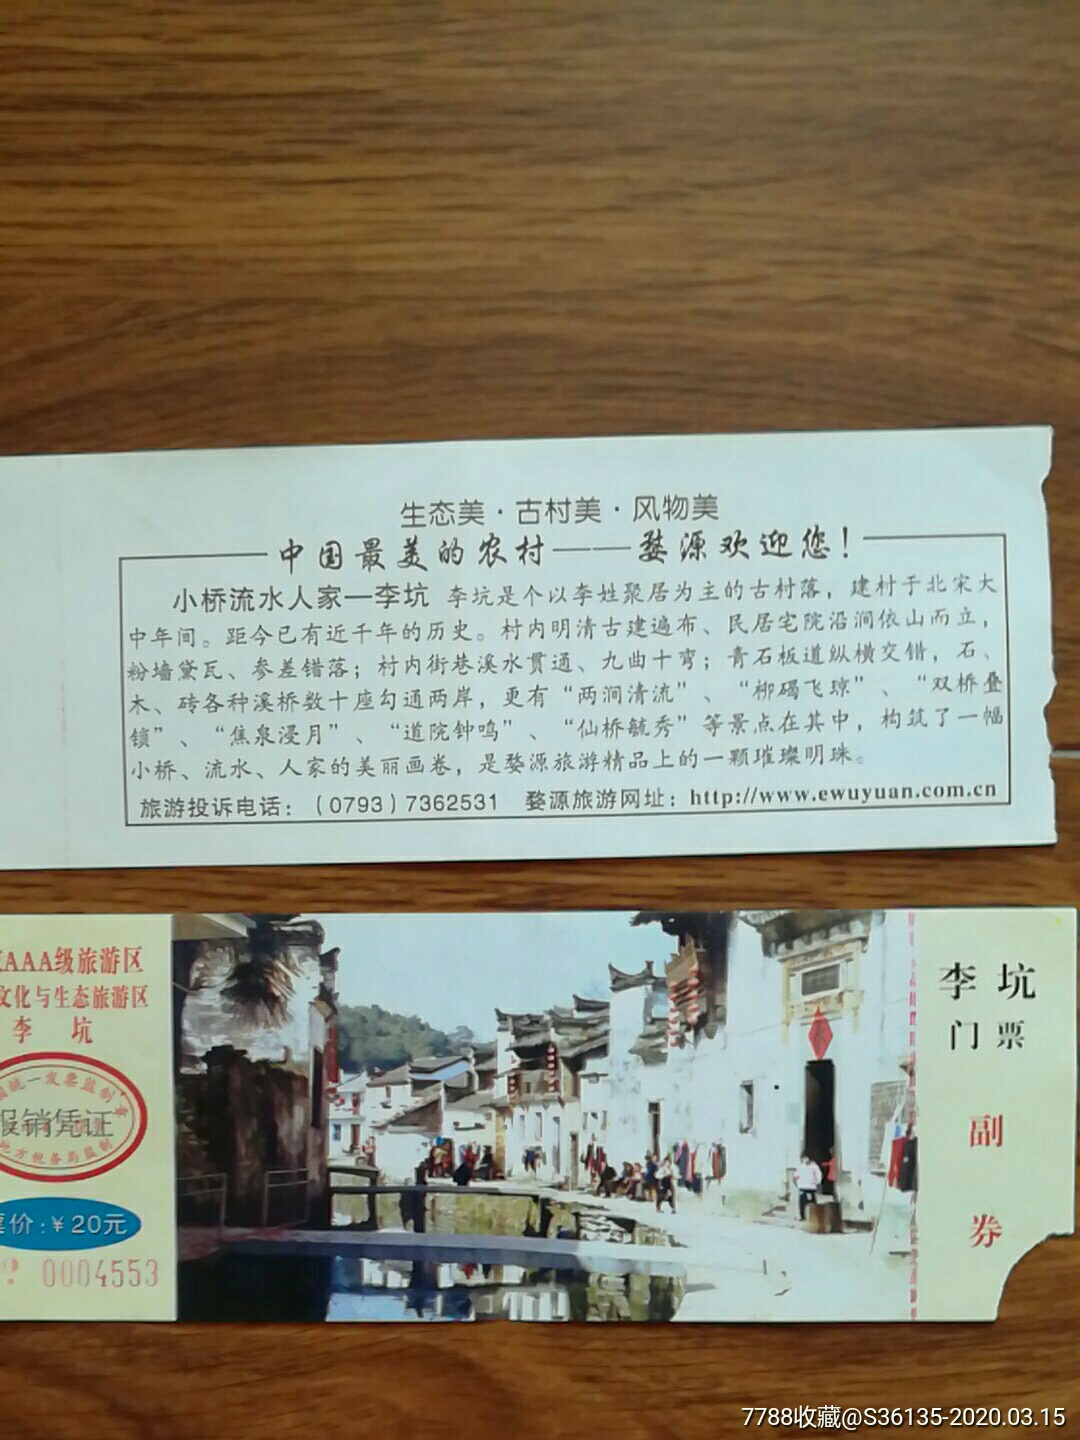 生态美·古村美·风物美
中国最美的农村——婺源欢迎您！
小桥流水人家—李坑 李坑是个以李姓聚居为主的古村落，建村于北宋大
中年间。距今已有近千年的历史。村内明清古建遍布、民居宅院沿涧依山而立，
粉墙黛瓦、参差错落；村内街巷溪水贯通、九曲十弯；青石板道纵横交错，石、
木、砖各种溪桥数十座勾通两岸，更有“两涧清流”、“柳碣飞琼”、“双桥叠
锁”、“焦泉浸月”、“道院钟鸣”、“仙桥毓秀”等景点在其中，构筑了一幅
小桥、流水、人家的美丽画卷，是婺源旅游精品上的一颗璀璨明珠。
旅游投诉电话：（0793）7362531 婺源旅游网址：http://www.ewuyuan.com.cn
AAA级旅游区
文化与生态旅游区
李坑
统一发票监制章
报销凭证
地方税务局监制
票价：¥20元
0004553
李坑
门票
副
券
7788收藏@S36135-2020.03.15